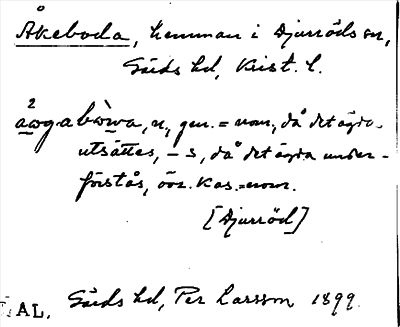 Åkeboda, hemman i Djurröds sn,
Gärds hd, Krist. l.
2
åogabòwa, n, gen. = nom, då det ägda
utsättes, – s, då det ägda under-
förstås, övr. kas. = nom.
[Djurröd]
AL. Gärds hd, Per Larsson 1899.